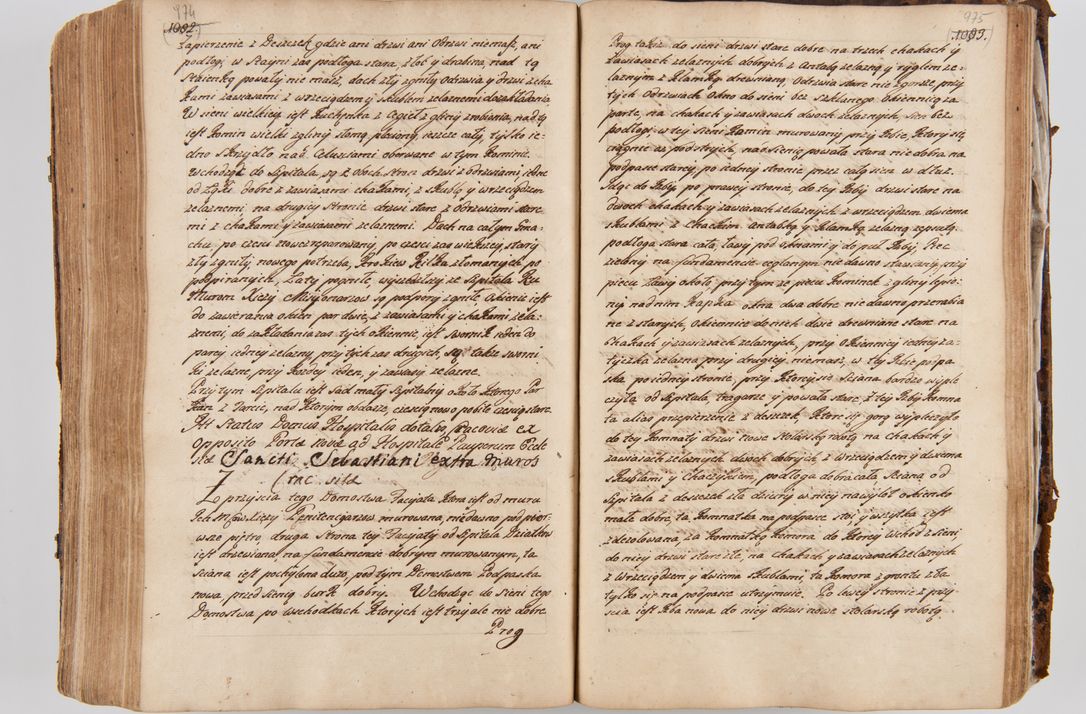 974
1082.
zapierzenie z Deszczek gdzie ani drzwi ani Obrzwi niemasz, ani
podłogi, w Stayni zas podłoga stara, złob y drabina, nad tą
Staienką powały nie masz, dach zły zgniły Odrzwia y drzwi z cha
kami zawiasami z wrzeciądzem y skublem zelaznemi do zakładania
W sieni wielkiey iest Kuchenka z Cegieł z gliny zrobiona, nad tą
iest Komin wielki z gliny słomą pleciony, ieszcze cały, tylko ie-
dno skrzydło nad Celusciami oberwane w tym Kominie.
Wchodząc do Szpitala, są z oboch stron drzwi z Odrzwiami, iedne
od Zyda dobre z zawiasami chakami, z skublą y wrzeciądzem
zelaznemi na drugiey Stronie drzwi stare z Odrzwiami stare
mi z chakami y zawiasami zelaznemi. Dach na całym Gma-
chu, po części znowu zreparowany, po części zaś większey stary
zły zgniły, nowego potrzeba, Krokiew kilka złomanych, go
podpieranych, Łaty pogniłe,
Murom Xięży Missyonarzow są podpory zgniłe. Okienic iest
do zawierania okien par dwie, z zawiasami y chakami zela-
znemi, do zakładania zas tych okiennic, iest sworni ieden do
parey iedney zelazny, przy tych zas drugich, są także sworni
ki zelazne, przy kozdey ieden, y zawiasy zelazne.
Przy tym Szpitalu iest sad mały Szpitalny około ktorego Par
kan z Tarcic, nad ktorym obdasze, częścią nowo pobite częścią stare.
Alt Status Domus Hospitalis dotalis, pracovia ex
opposito Portæ novæ ad Hospitale Pauperum Eccle
siæ Sancti Sebastiani extra Muros
Crac. sitæ
Z przyścia tego Domostwa Facyiata ktora iest od muru
Ich Mściow Xięży Penitencyarzow murowana, niedawno pod pier-
wsze piętro, druga Strona tey Facyaty od Szpitala Dziatek
iest drzewiana, na fundamencie dobrym murowanym, ta
Sciana iest pochylona duzo, pod tym Domostwem Podpaska
nowa przed sienią burk dobry. Wchodząc do Sieni tego
Domostwa po wschodkach ktorych iest trzy ale nie dobre
Prog
975
1083.
Prog także do sieni drzwi stare dobre na trzech chakach y
zawiasach zelaznych dobrych z Antabą zelazną y ryglem ze-
laznym z klamką drewnianą, Odrzwia stare nie zgorsze, przy
tych Odrzwiach okno do sieni bez Szklanego okiennicą za
parte, na chakach y zawiasach dwoch zelaznych, sień bez
podłogi, w tey sieni Komin murowany przy Izbie, ktory się
ciągnie az pod strych, nad sienią powała stara nie dobra na
podparce starey, po iedney stronie przez całą sien w dłuz.
Idąc do Izby po prawey stronie, do tey Izby drzwi stare na
dwoch chakach y zawiasach zelaznych z wrzeciądzem dwiema
skublami z chaczkiem antabką y klamką zelazną zepsutą.
podłoga stara cała, ławy pod oknami y do puł Izby, Piec
zielony na fundamencie ceglanym niedawno stawiany, przy
piecu ławy około przy tym ze piecu Kominek z gliny lepio-
ny nad nim Kapka okna dwa dobre nie dawno przerabia
ne z starych, okiennice do nich dwie drewniane stare na
Chakach y zawiasach zelaznych, przy okiennicy iedney za-
tyczka zelazna, przy drugiey niemasz, w tey Izbie przypa
ska po iedney stronie, przy ktorey się Sciana bardzo wypie
czyła od Szpitala, tragarze y powała stare, z tey Izby Komna
ta alias przepierzenie z deszczek, ktore się gorą wypieczyło
do tey Komnaty drzwi nowe Stolarską robotą na chakach y
zawiasach zelaznych dwoch dobrych, z wrzeciądzem y dwiema
skublami y Chaczykiem, podłoga dobra cała, Sciana od
Szpitala z deszczek zła dziury w niey na wylot okienko
małe dobre, ta Komnatka na podparce stoi, y wszytka iest
zdezolowana, za Komnatką Komora do ktorey wchod z sieni,
do niey drzwi stare złe, na chakach, y zawiasach zelaznych
z wrzeciądzem y dwiema skublami, ta Komora z gruntu zła
tylko się na podparce utrzymuie. Po lewey stronie z przy-
scia iest Izba nowa do niey drzwi nowe stolarską robotą.